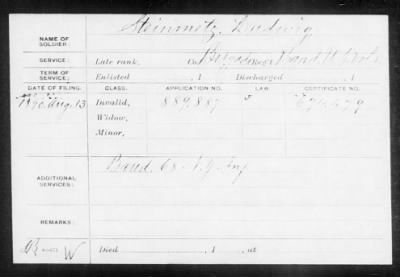 NAME OF SOLDIER: Steinmetz, Ludwig
SERVICE: Late rank, Co. Band, U.S. Vols
TERM OF SERVICE: Enlisted , 1 Discharged , 1
DATE OF FILING. CLASS. APPLICATION NO. LAW. CERTIFICATE NO.
1890 Aug. 13 Invalid, 889.887
Widow,
Minor,
ADDITIONAL SERVICES: Band. 68 N.Y. Inf
REMARKS:
W Died , 1 , at